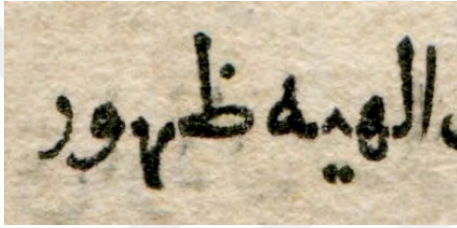 الهیه ظهور